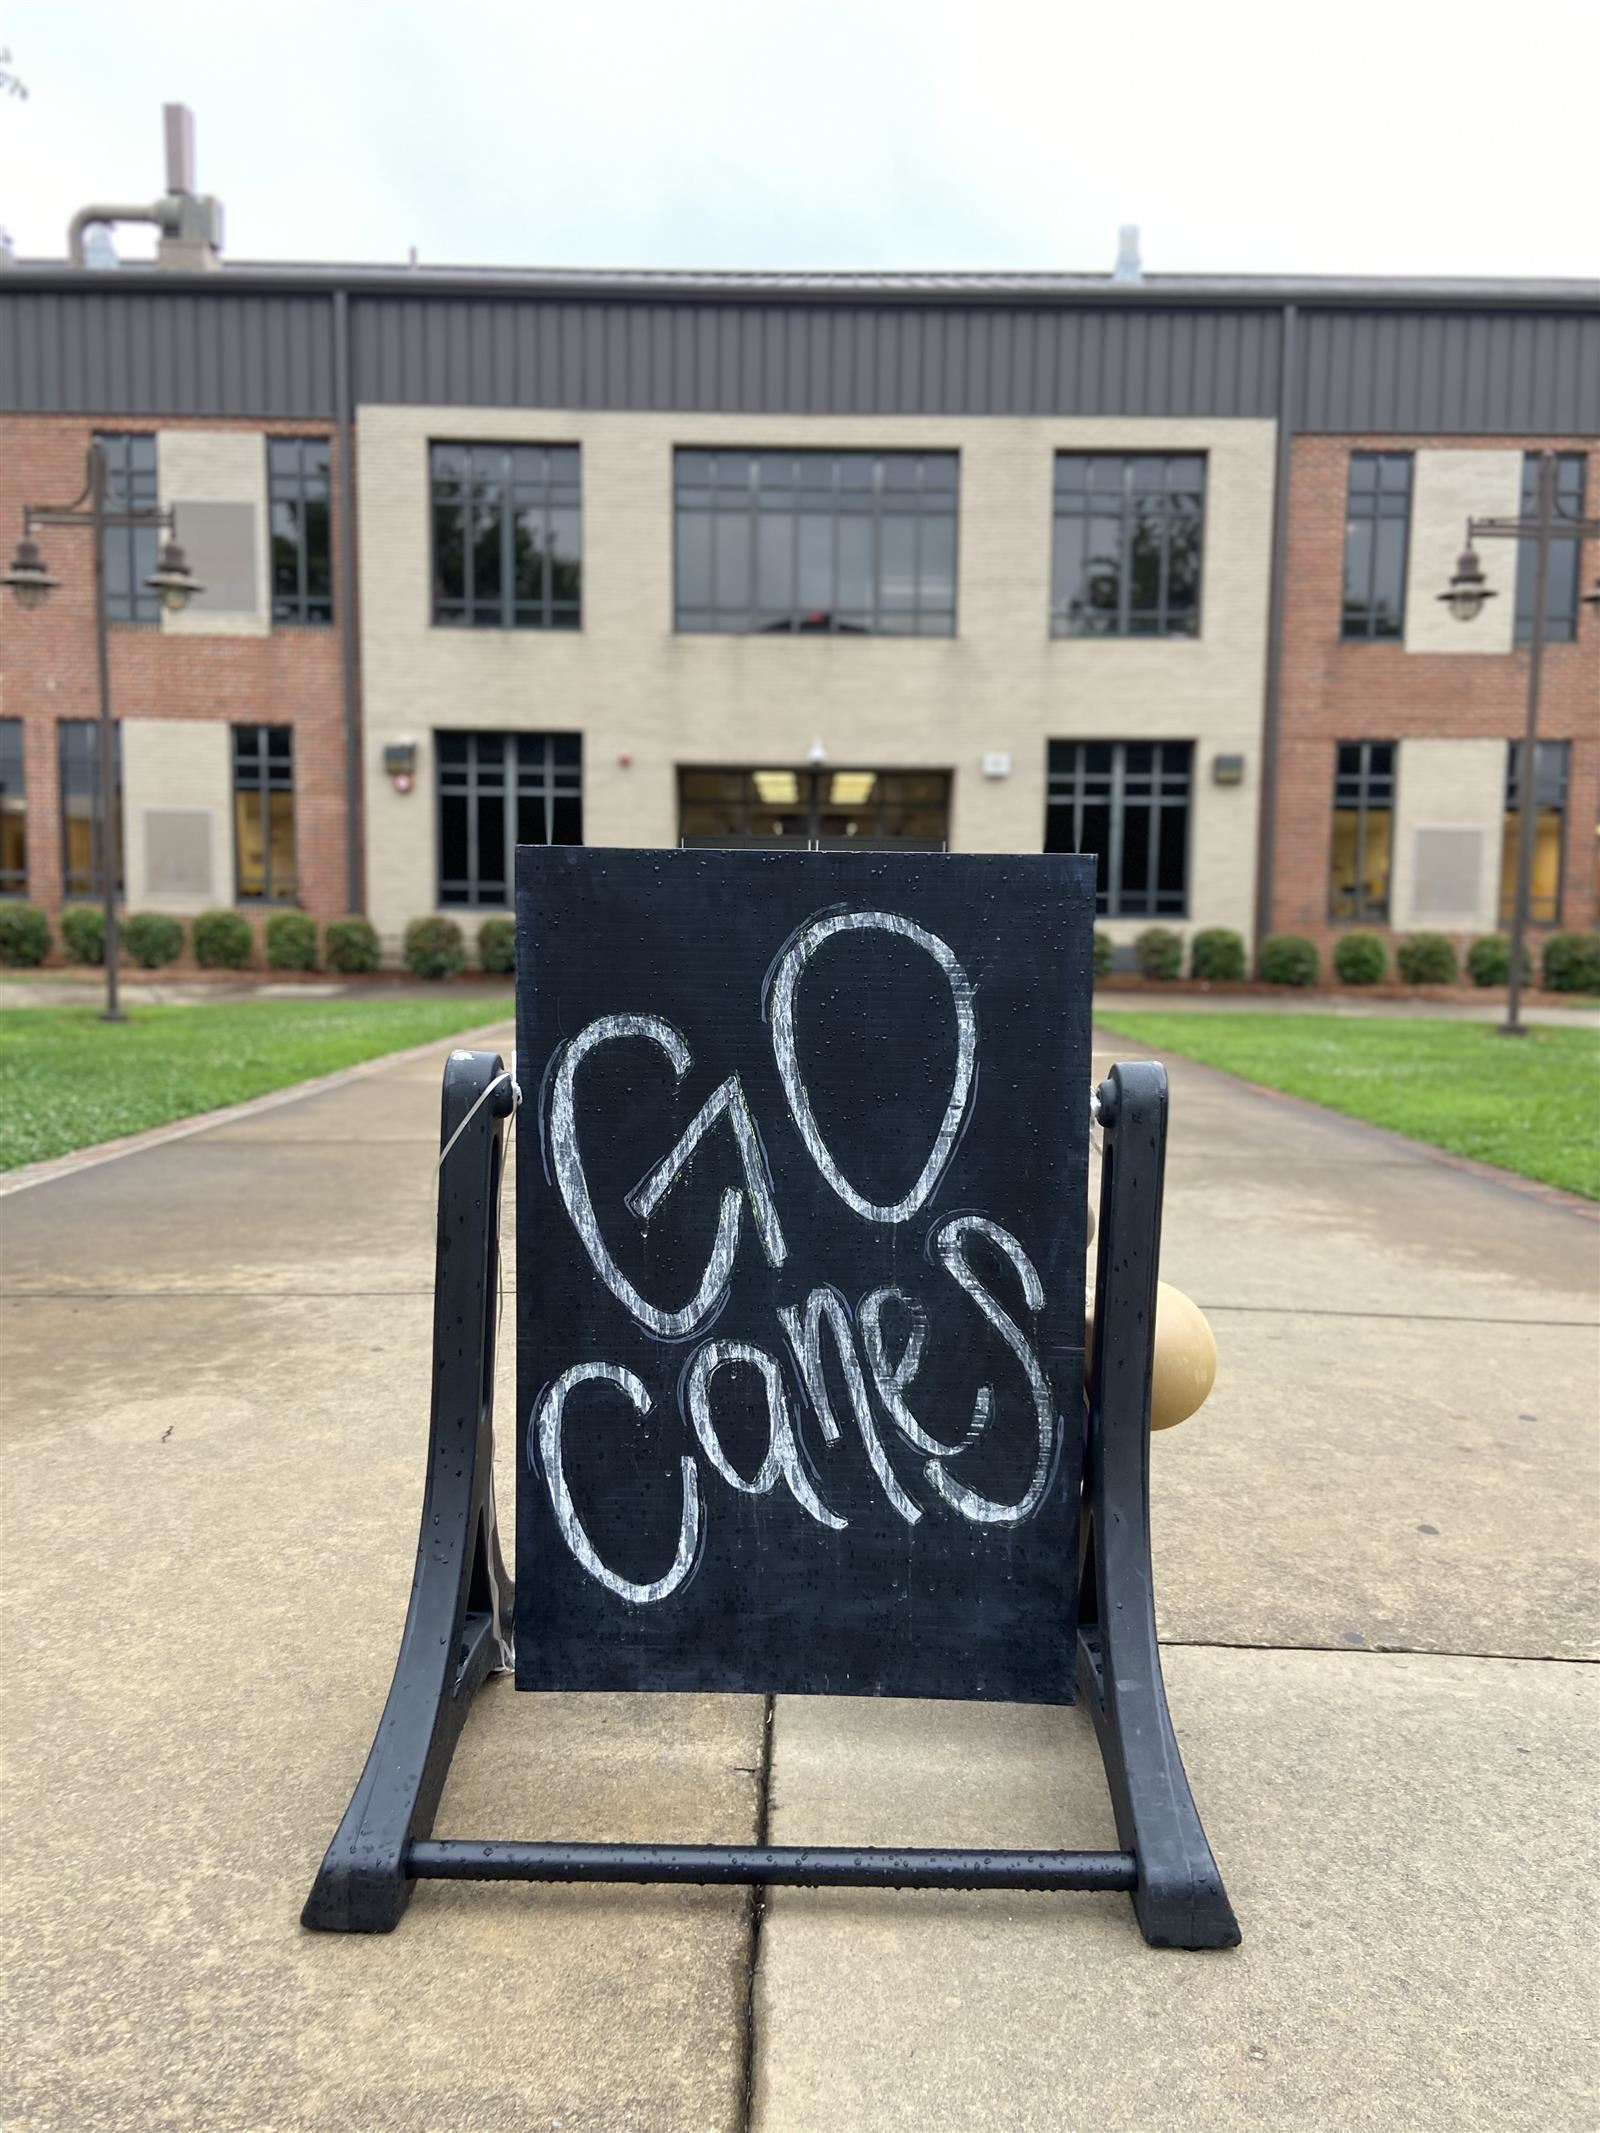 GO
Canes